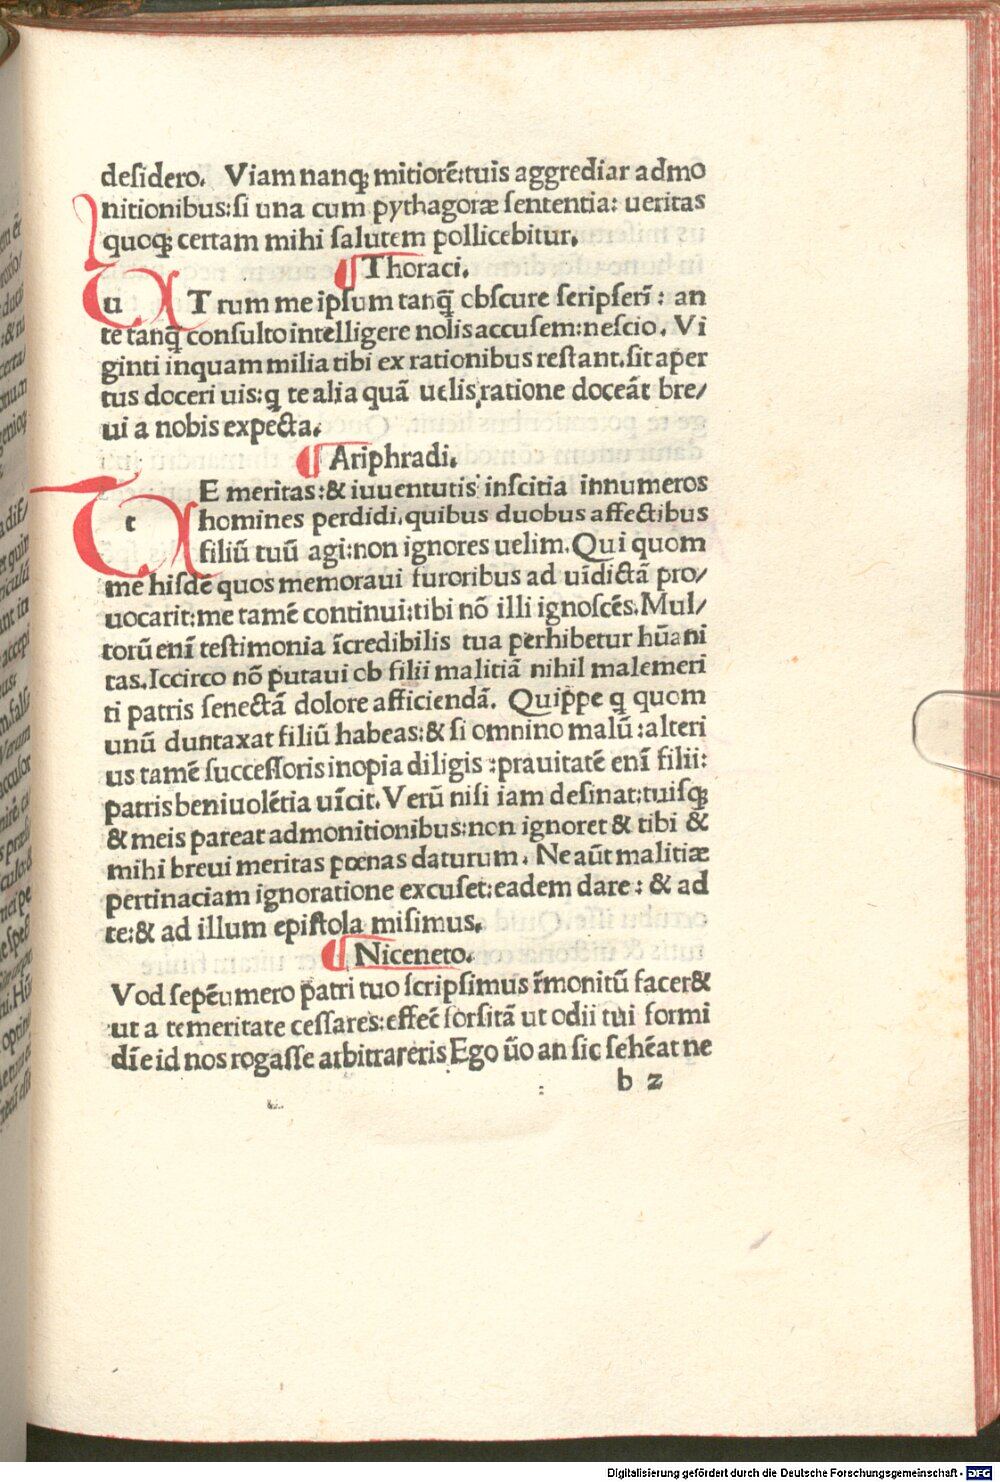 deſidero. Viam nanqꝫ mitiorē:tuis aggrediar admo
nitionibus:ſi una cum pythagoræ ſententia: ueritas
quoqꝫ certam mihi ſalutem pollicebitur.
Thoraci.
u Trum meipſum tanq̃ obſcure ſcripſerī: an
te tanq̃ conſulto intelligere nolis accuſem:neſcio. Vi
ginti inquam milia tibi ex rationibus reſtant.ſit aper
tus doceri uis:q te alia quā uelis ratione doceāt bre/
ui a nobis expecta.
Ariphradi.
t E meritas:& iuuentutis inſcitia innumeros
homines perdidi.quibus duobus affectibus
filiū tuū agi:non ignores uelim. Qui quom
me hiſdē quos memoraui furoribus ad uīdictā pro/
uocarit:me tamē continui:tibi nō illi ignoſcēs. Mul/
torū enī teſtimonia īcredibilis tua perhibetur hūani
tas.Iccirco nō putaui ob filii malitiā nihil malemeri
ti patris ſenectā dolore afficiendā. Quippe q quom
unū duntaxat filiū habeas:& ſi omnino malū:alteri
us tamē ſucceſſoris inopia diligis :prauitatē enī filii:
patris beniuolētia uīcit. Verū niſi iam deſinat:tuiſqꝫ
& meis pareat admonitionibus:non ignoret & tibi &
mihi breui meritas pœnas daturum. Ne aūt malitiæ
pertinaciam ignoratione excuſet:eadem dare: & ad
te:& ad illum epiſtola miſimus.
Niceneto.
Vod ſepēumero patri tuo ſcripſimus r̄monitū facer&
ut a temeritate ceſſares:effec̄ forſitā ut odii tui formi
dīe id nos rogaſſe arbitrareris Ego ūo an ſic ſehēat ne
b 2
Digitalisierung gefördert durch die Deutsche Forschungsgemeinschaft - DFG